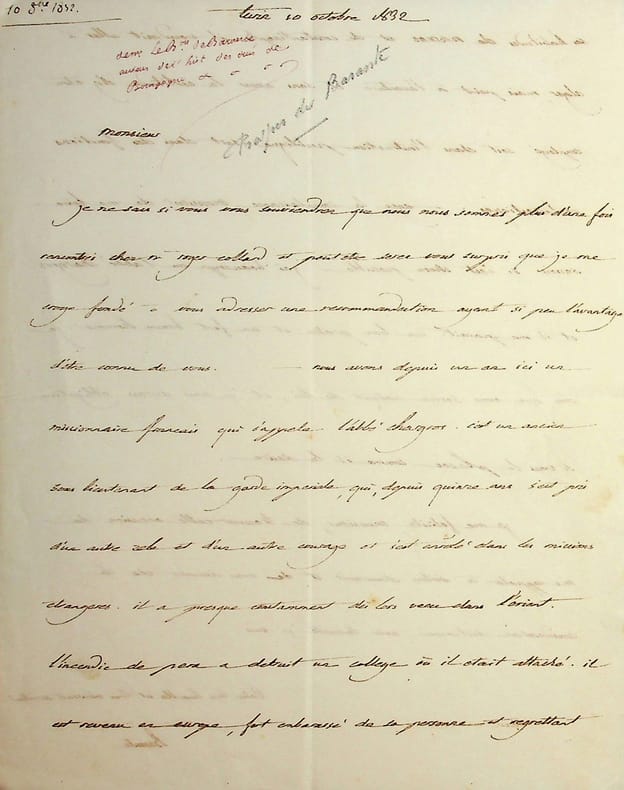 10 8bre 1832.
turin 10 octobre 1832
de mr Le Bon de Barante
auteur de l'hist des ducs de
Bourgogne
Prosper de Barante
Monsieur
je ne sais si vous vous souviendrez que nous nous sommes plus d'une fois
rencontrés chez mr royer collard et peutetre serez vous surpris que je me
croye fondé a vous adresser une recommandation ayant si peu l'avantage
d'être connu de vous. nous avons depuis un an ici un
missionnaire francais qui s'appele l'abbé chargros. c'est un ancien
sous lieutenant de la garde imperiale, qui, depuis quinze ans s'est pris
d'un autre zele et d'un autre courage et s'est enrolé dans les missions
etrangeres. il a presque constamment dès lors vecu dans l'orient.
l'incendie de pera a detruit un college où il etait attaché. il
est revenu en europe, fort embarassé de sa personne et regrettant